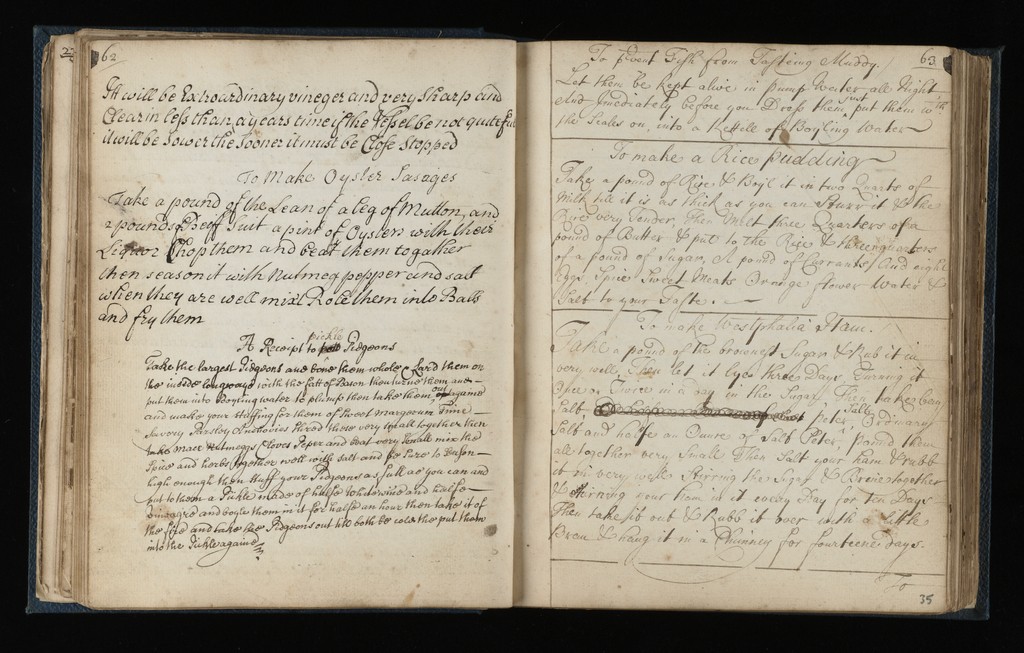 62
It will be Extraordinary vineger and very Sharp and
Clear in less than a years time if the Vessel be not quite full
it will be Sower the Sooner it must be Close Stopped
To Make Oyster Sasages
Take a pound of the Lean of a Leg of Mutton, and
2 pounds of Beeff Suit a pint of Oysters with their
Liquor Chop them and beat them together
then season it with Nutmeg pepper and salt
when they are well mixt Role them into Balls
and fry them
A Receipt to pickle Pidgeons
Take the largest Pidgeons and bone them whole & Lard them on
the inside with the fatt of Bacon then turne them and
put them into Boyling water to plump then take them out againe
and make your stuffing for them of Sweet margerum Time
Savory Parsley Anchovies Shred these very small together then
take Mace Nutmegg Cloves Peper and beat very small mix the
Spice and herbs together well with salt and be sure to season
high enough then stuff your Pidgeons as full as you can and
put to them a Pickle made of halfe Whitewine and halfe
vinaagre and boyle them in it for halfe an hour then take it of
the fire and take the Pidgeons out till both be cold then put them
into the Pickle againe
63
To pvent Fish from Tasteing Muddy.
Let them be Kept alive in pump Water all Night
And Imediately before you Dress them just put them with
the Scales on, into a Kettell of Boyling Water
To make a Rice pudding
Take a pound of Rice & Boyl it in two Quarts of
Milk till it is as thick as you can Sturr it & the
Rice very Tender Then Melt three Quarters of a
pound of Butter & put to the Rice & three quarters
of a pound of Sugar, A pound of Currants, And eight
Eggs Spice Sweet Meats Orange flower Water &
Salt to your Taste.
To make Westphalia Ham.
Take a pound of the brownest Sugar & Rub it in
very well, Then let it Lye three Days Turning it
Once or Twice in a day in the Sugar, Then take Bay
Salt, peter Salt, Ordinary
Salt and halfe an Ounce of Salt Peter pound them
all together very Small Then Salt your ham & rubb
it in very well Stirring the Sugar & Brine together
& turning your ham in it every Day for Ten Days
Then take it out & Rubb it over with a little
Bran & hang it in a Chimney for fourteene Days.
To
35